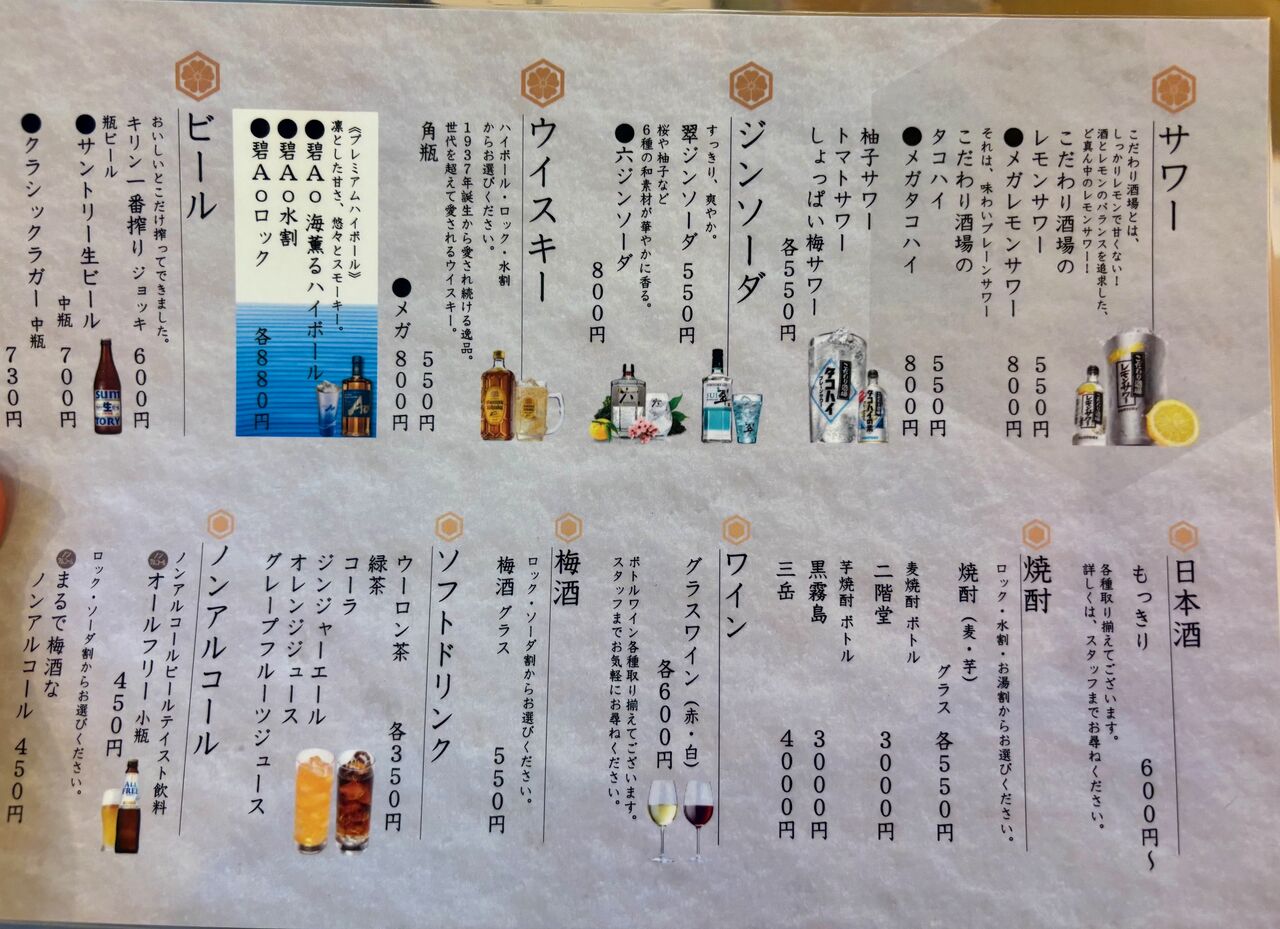 サワー
こだわり酒場とは、
しっかりレモンで甘くない！
酒とレモンのバランスを追求した、
ど真ん中のレモンサワー！
こだわり酒場の
レモンサワー 550円
●メガレモンサワー 800円
それは、味わいプレーンサワー
こだわり酒場の
タコハイ 550円
●メガタコハイ 800円
柚子サワー
トマトサワー
しょっぱい梅サワー
各550円
ジンソーダ
すっきり、爽やか。
翠ジンソーダ 550円
桜や柚子など
6種の和素材が華やかに香る。
●六ジンソーダ
800円
ウイスキー
ハイボール・ロック・水割
からお選びください。
1937年誕生から愛され続ける逸品。
世代を超えて愛されるウイスキー。
角瓶 550円
●メガ 800円
《プレミアムハイボール》
凛とした甘さ、悠々とスモーキー。
●碧Ao 海薫るハイボール
●碧Ao水割
●碧Aoロック
各880円
ビール
おいしいとこだけ搾ってできました。
キリン一番搾り ジョッキ 600円
瓶ビール
●サントリー生ビール
中瓶 700円
●クラシックラガー 中瓶
730円
日本酒
もっきり 600円～
各種取り揃えてございます。
詳しくは、スタッフまでお尋ねください。
焼酎
ロック・水割・お湯割からお選びください。
焼酎（麦・芋）
グラス 各550円
麦焼酎 ボトル
二階堂 3000円
芋焼酎 ボトル
黒霧島 3000円
三岳 4000円
ワイン
グラスワイン（赤・白）
各600円
ボトルワイン各種取り揃えてございます。
スタッフまでお気軽にお尋ねください。
梅酒
ロック・ソーダ割からお選びください。
梅酒 グラス 550円
ソフトドリンク
ウーロン茶
緑茶
コーラ
ジンジャーエール
オレンジジュース
グレープフルーツジュース
各350円
ノンアルコール
ノンアルコールビールテイスト飲料
オールフリー 小瓶
450円
ロック・ソーダ割からお選びください。
まるで梅酒な
ノンアルコール 450円